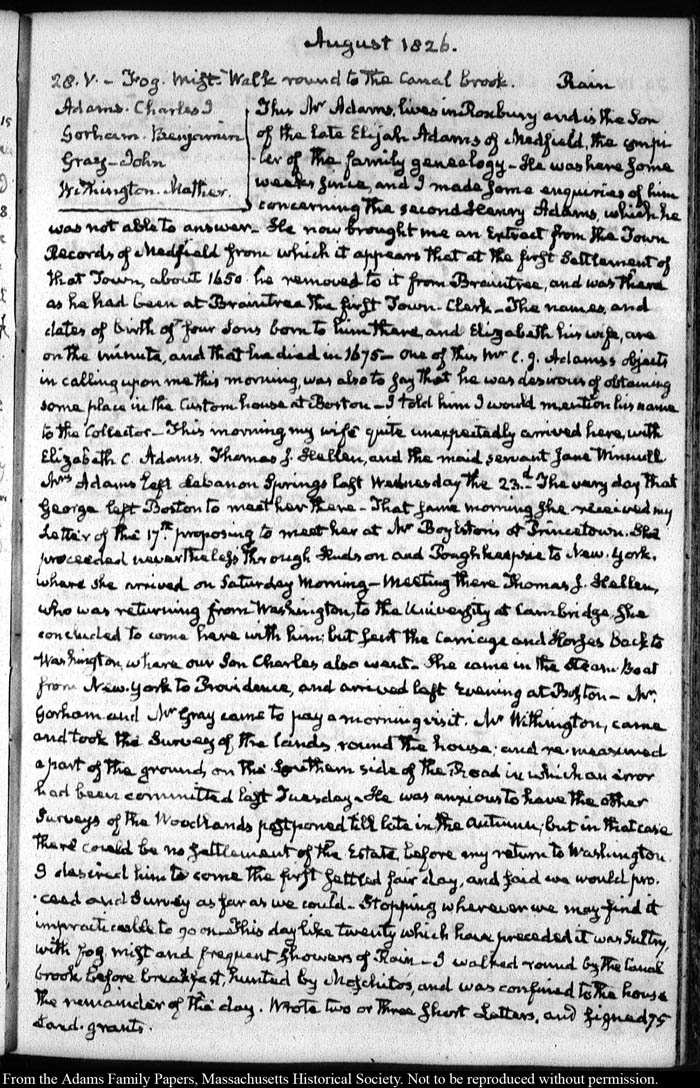 August 1826.
28. V. – Fog. Mist. Walk round to the Canal brook. Rain
Adams. Charles J
Gorham. Benjamin
Gray – John
Withington. Mather.
This Mr Adams, lives in Roxbury and is the Son
of the late Elijah Adams of Medfield, the compi-
ler of the family genealogy – He was here some
weeks since, and I made some enquiries of him
concerning the second Henry Adams, which he
was not able to answer – He now brought me an Extract from the Town
Records of Medfield from which it appears that at the first Settlement of
that Town, about 1650. he removed to it from Braintree, and was there
as he had been at Braintree the first Town-Clerk – The names, and
dates of birth of four sons born to him there, and Elizabeth his wife, are
on the minute, and that he died in 1675 – One of this Mr C. J. Adams's objects
in calling upon me this morning, was also to say that he was desirous of obtaining
some place in the Custom house at Boston – I told him I would mention his name
to the Collector – This morning my wife quite unexpectedly arrived here, with
Elizabeth C. Adams. Thomas J. Hellen, and the maid servant Jane Winnull
Mrs Adams left Lebanon Springs last Wednesday the 23.d The very day that
George left Boston to meet her there – That same morning she received my
Letter of the 17.th proposing to meet her at Mr Boylston's at Princetown. She
proceeded nevertheless through Hudson and Poughkeepsie to New-York,
where she arrived on Saturday Morning – Meeting there Thomas J. Hellen,
who was returning from Washington, to the University at Cambridge, she
concluded to come here with him; but sent the Carriage and Horses back to
Washington, where our Son Charles also went – She came in the Steam-Boat
from New-York to Providence, and arrived last Evening at Boston – Mr.
Gorham and Mr Gray came to pay a morning visit. Mr Withington, came
and took the Surveys of the lands, round the house; and re-measured
a part of the ground, on the Southern side of the Road in which an error
had been committed last Tuesday – He was anxious to have the other
Surveys of the Woodlands postponed till late in the Autumn; but in that case
there could be no settlement of the Estate, before my return to Washington.
I desired him to come the first settled fair day, and said we would pro-
-ceed and Survey as far as we could – Stopping wherever we may find it
impracticable to go on – This day like twenty which have preceded it was Sultry,
with fog, mist and frequent Showers of Rain – I walked round by the Canal
brook before breakfast, hunted by Moschitos, and was confined to the house
the remainder of the day. Wrote two or three short Letters, and signed 95
Land-grants.
From the Adams Family Papers, Massachusetts Historical Society. Not to be reproduced without permission.